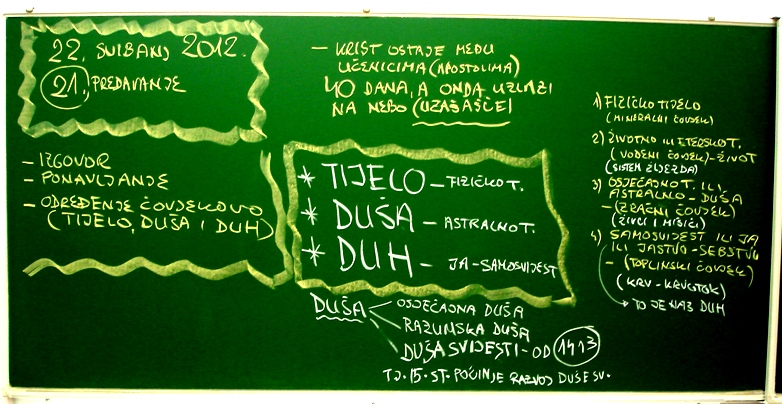 22. SVIBANJ 2012.
21. PREDAVANJE
- IZGOVOR
- PONAVLJANJE
- ODREĐENJE ČOVJEKOVO
(TIJELO, DUŠA I DUH)
- KRIST OSTAJE MEĐU
UČENICIMA (APOSTOLIMA)
40 DANA, A ONDA UZLAZI
NA NEBO (UZAŠAŠČE)
* TIJELO - FIZIČKO T.
* DUŠA - ASTRALNO T.
* DUH - JA - SAMOSVIJEST
DUŠA
OSJEĆAJNA DUŠA
RAZUMSKA DUŠA
DUŠA SVIJESTI - OD 1413
TJ. 15. ST. POČINJE RAZVOJ DUŠE SV.
1) FIZIČKO TIJELO
(MINERALNI ČOVJEK)
2) ŽIVOTNO ILI ETERSKO T.
(VODENI ČOVJEK) - ŽIVOT
(SISTEM ŽLJEZDA)
3) OSJEĆAJNO T. ILI
ASTRALNO - DUŠA
- (ZRAČNI ČOVJEK)
(ŽIVCI I MIŠIĆI)
4) SAMOSVIJEST ILI JA,
ILI JASTVO - SEBSTVO
- (TOPLINSKI ČOVJEK)
(KRV - KRVOTOK)
→ TO JE NAŠ DUH